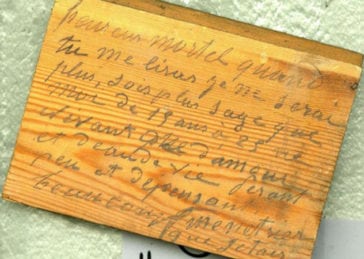 heureux mortel quand
tu me liras je ne serai
plus, sois plus sage que
moi de 15 ans à 25 ne
vivant que d'amour
et d'eau de vie
peu et dépensant
beaucoup